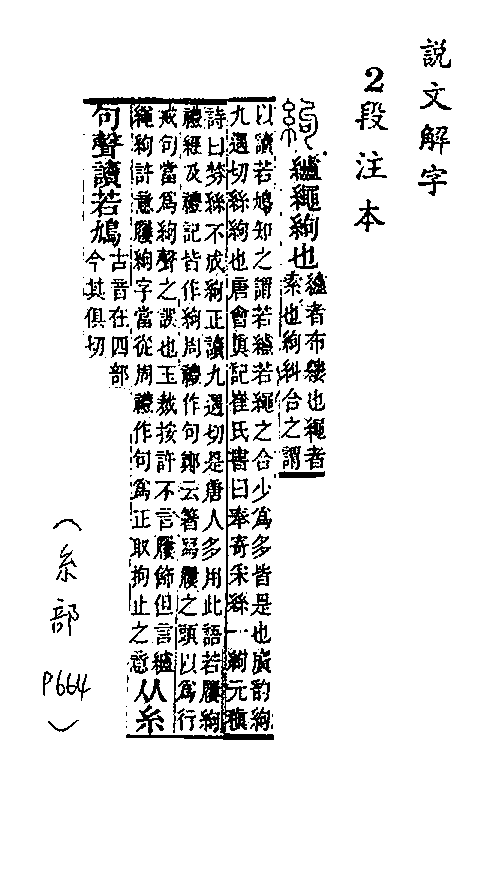 説文解字
2段注本
絇 纑繩絇也 纑者布縷也繩者
索也絇糾合之謂
以讀若鳩知之謂若纑若繩之合少爲多皆是也廣韵絇
九遇切絲絇也唐會眞記崔氏書曰奉寄采絲一絇元稹
詩曰棼絲不成絇正讀九遇切是唐人多用此語若屨絇
禮經及禮記皆作絇周禮作句鄭云著舄屨之頭以爲行
戒句當爲絇聲之誤也玉裁按許不言屨飾但言纑
繩絇許意屨絇字當從周禮作句爲正取拘止之意
从糸
句聲讀若鳩 古音在四部
今其俱切
(糸部 P664)